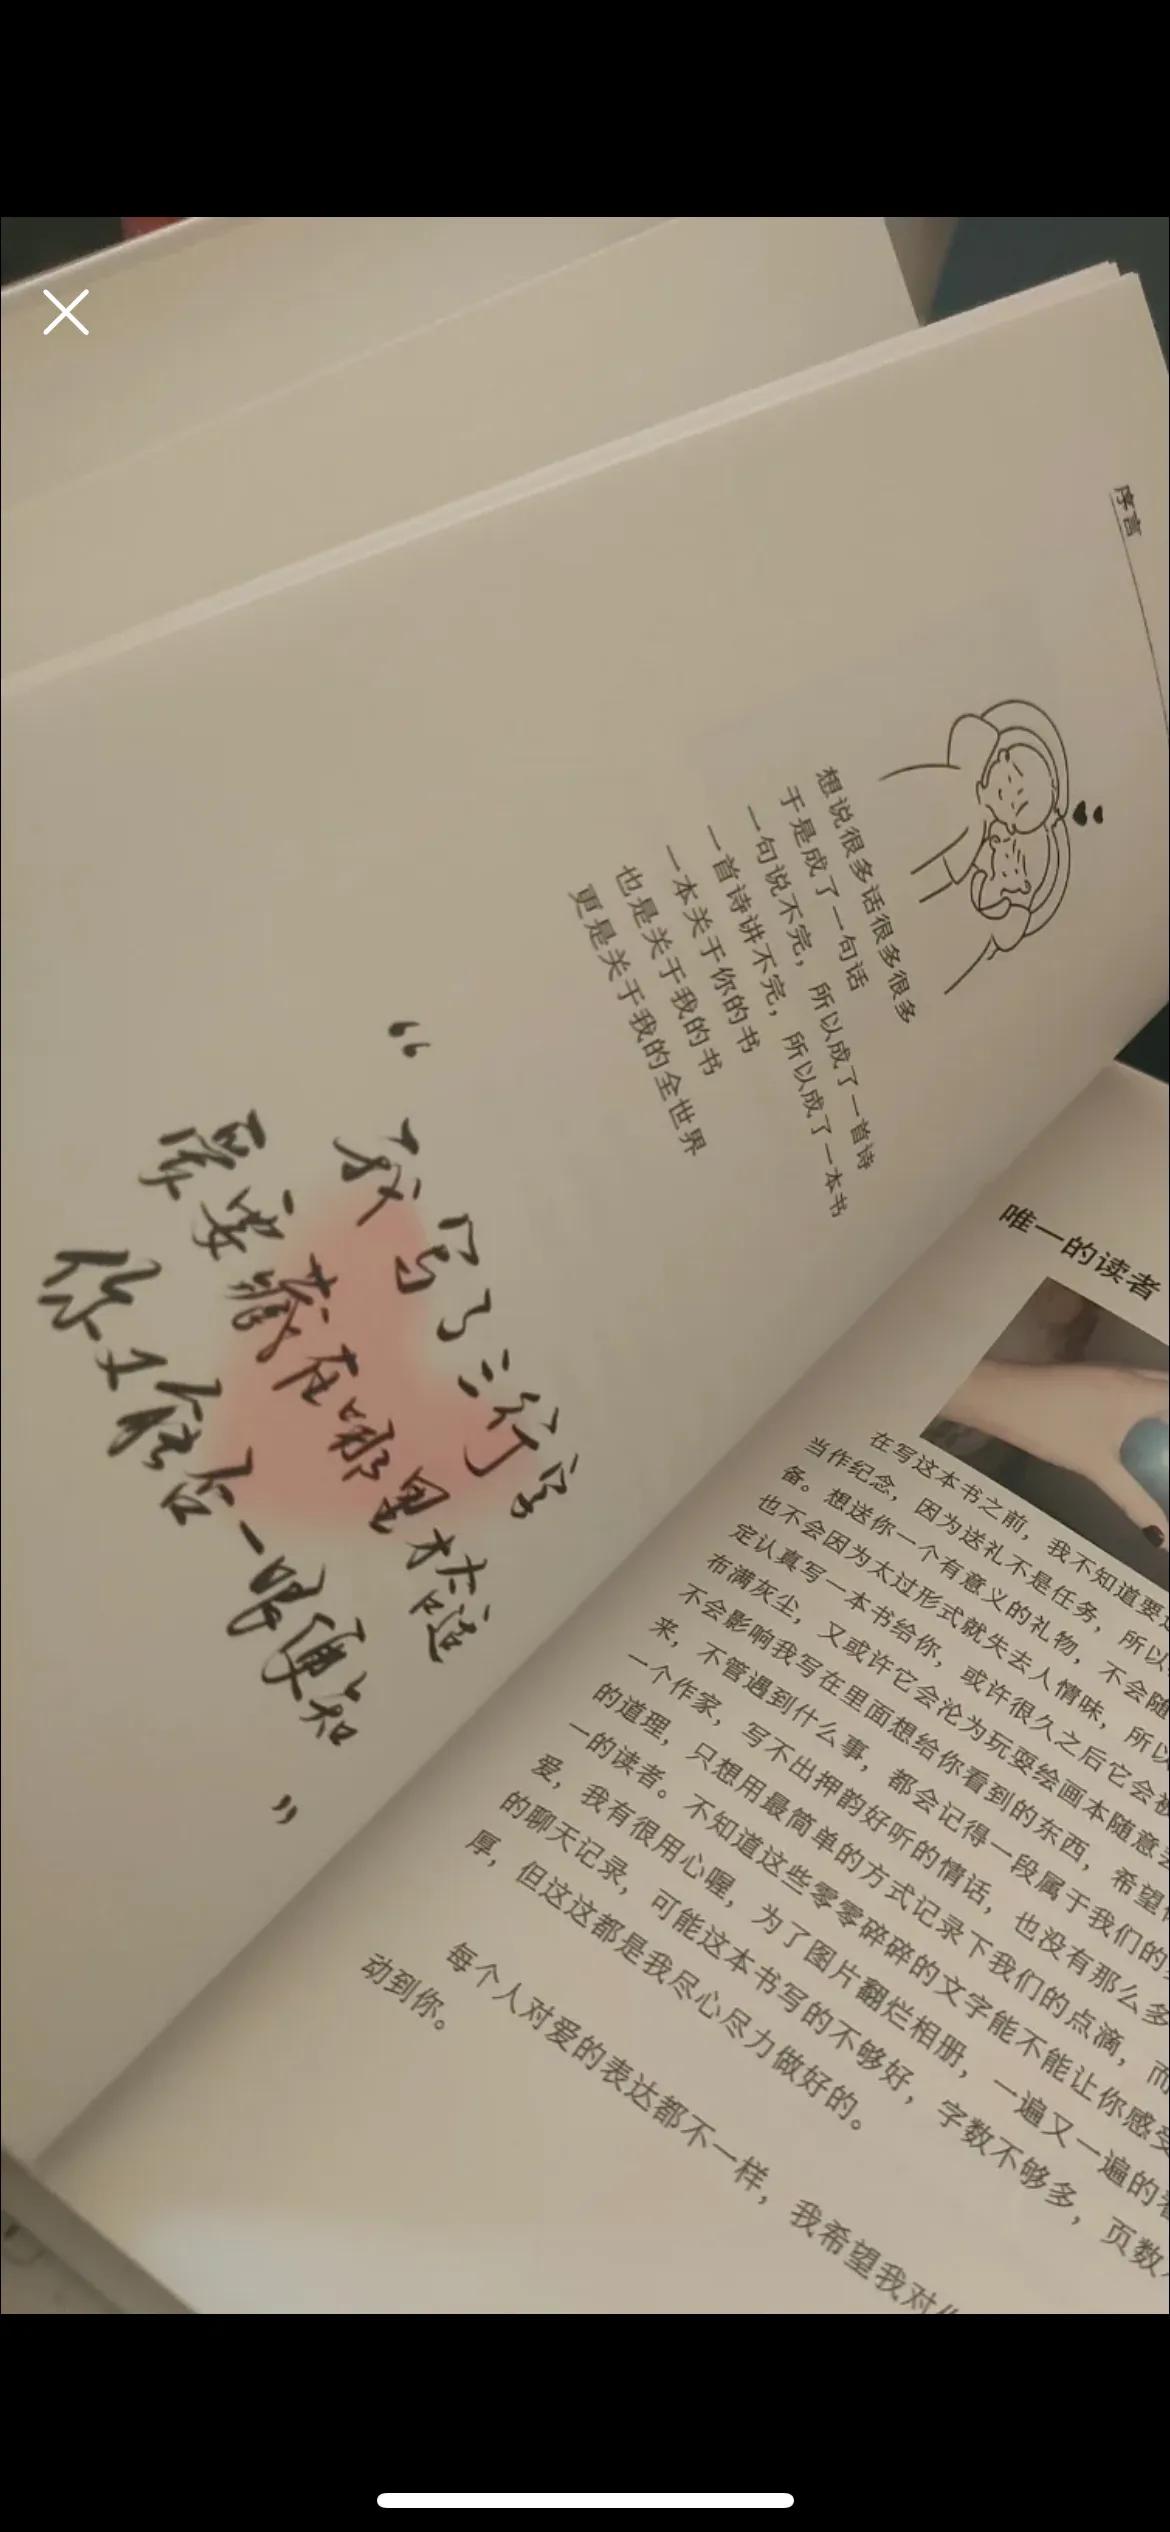 序言
想说很多话很多很多
于是成了一句话
一句说不完，所以成了一首诗
一首诗讲不完，所以成了一本书
一本关于你的书
也是关于我的书
更是关于我的全世界
“
我写了三行字
爱要藏在哪里材造
你且信右一眸便知
”
唯一的读者
在写这本书之前，我不知道要
当作纪念，因为送礼不是任务，所以
备。想送你一个有意义的礼物，不会随
也不会因为太过形式就失去人情味，所以
定认真写一本书给你，或许很久之后它会被
布满灰尘，又或许它会沦为玩耍绘画本随意
不会影响我写在里面想给你看到的东西，希望
来，不管遇到什么事，都会记得一段属于我们的
一个作家，写不出押韵好听的情话，也没有那么多
的道理，只想用最简单的方式记录下我们的点滴，而
一的读者。不知道这些零零碎碎的文字能不能让你感受
爱，我有很用心喔，为了图片翻烂相册，一遍又一遍的看
的聊天记录，可能这本书写的不够好，字数不够多，页数
厚，但这这都是我尽心尽力做好的。
每个人对爱的表达都不一样，我希望我对
动到你。